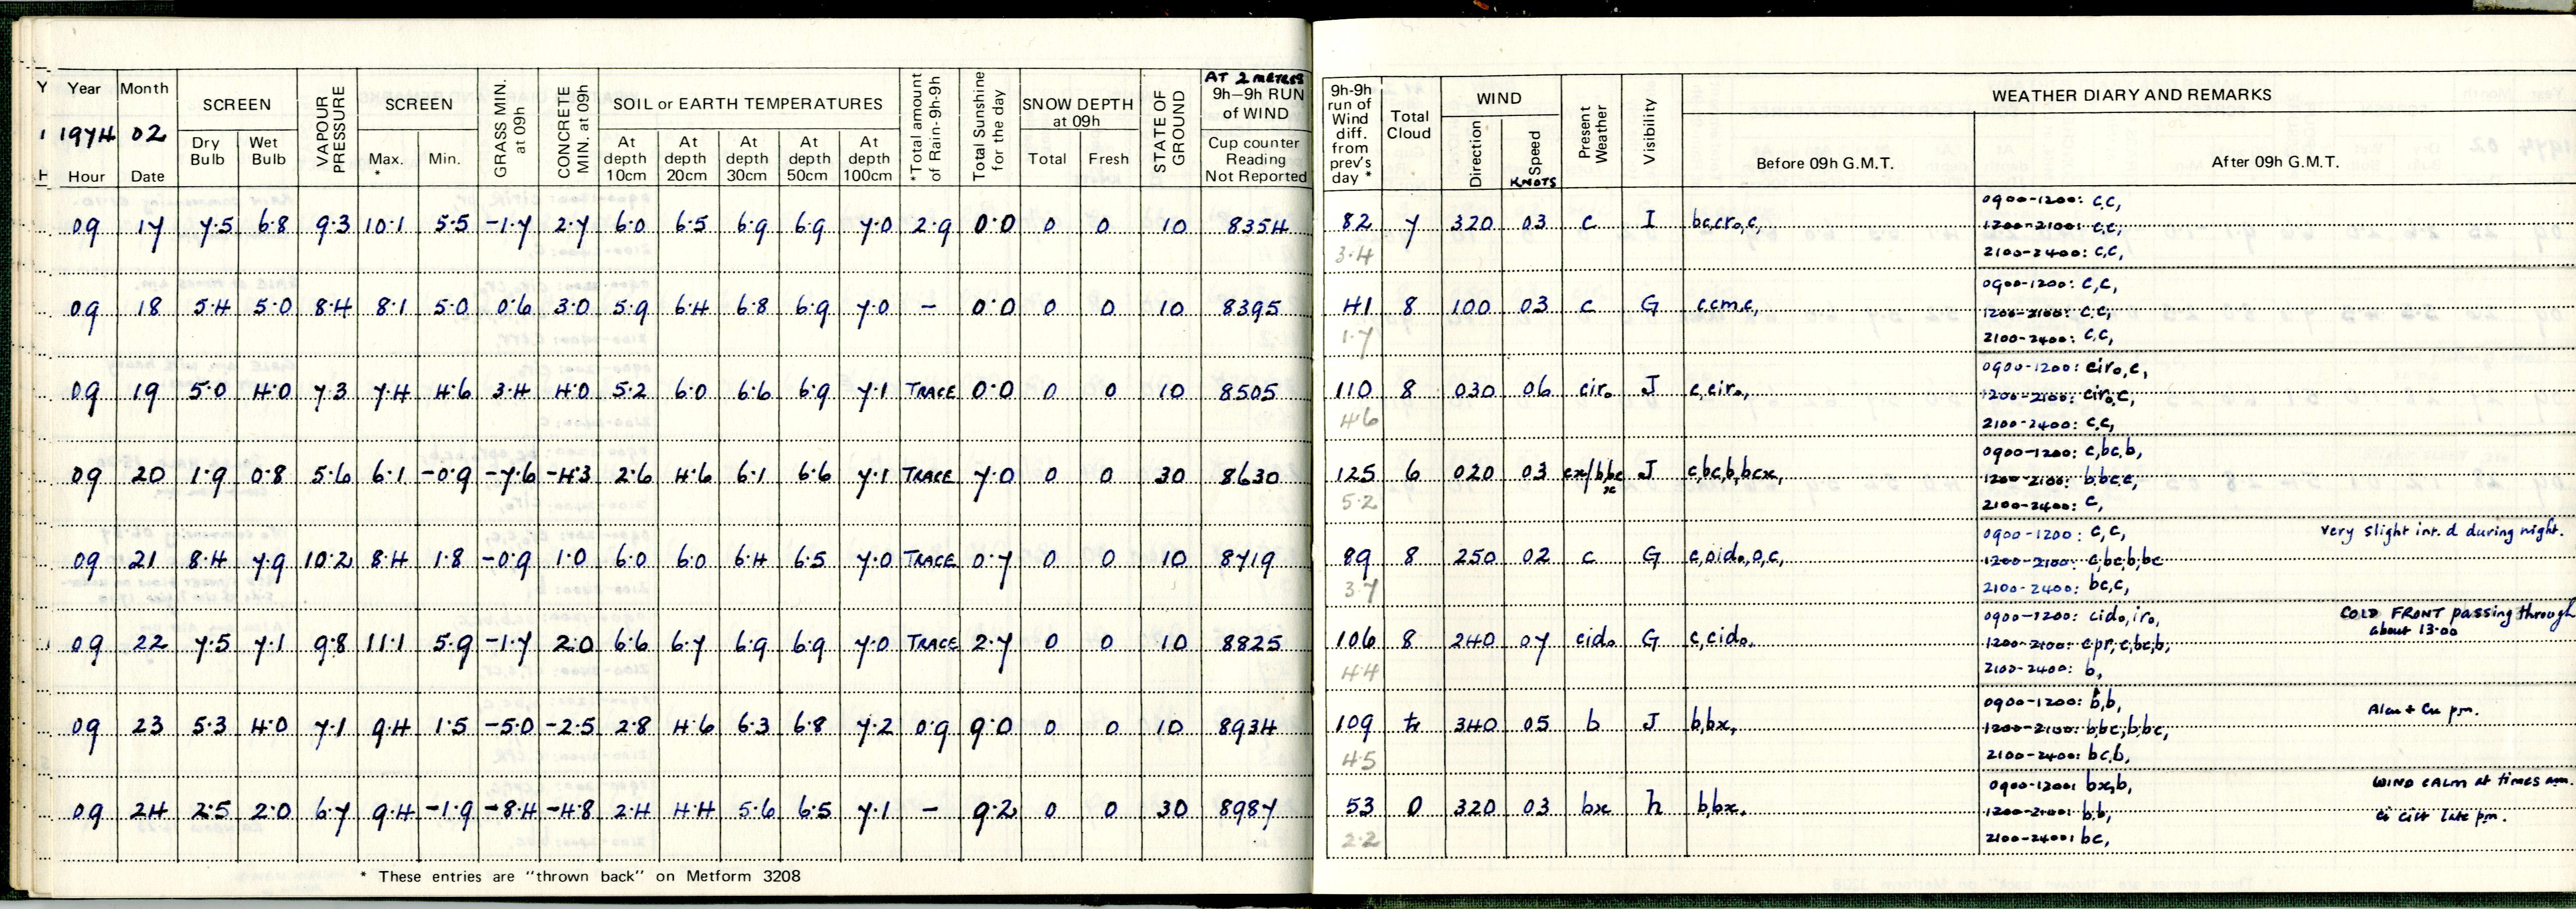 Year Month SCREEN VAPOUR PRESSURE SCREEN GRASS MIN. at 09h CONCRETE MIN. at 09h SOIL or EARTH TEMPERATURES *Total amount of Rain-9h-9h Total Sunshine for the day SNOW DEPTH at 09h STATE OF GROUND AT 2 METRES 9h-9h RUN of WIND
1974 02 Dry Bulb Wet Bulb Max. * Min. At depth 10cm At depth 20cm At depth 30cm At depth 50cm At depth 100cm Total Fresh Cup counter Reading Not Reported
Hour Date
09 17 7.5 6.8 9.3 10.1 5.5 -1.7 2.7 6.0 6.5 6.9 6.9 7.0 2.9 0.0 0 0 10 8354
09 18 5.4 5.0 8.4 8.1 5.0 0.6 3.0 5.9 6.4 6.8 6.9 7.0 - 0.0 0 0 10 8395
09 19 5.0 4.0 7.3 7.4 4.6 3.4 4.0 5.2 6.0 6.6 6.9 7.1 TRACE 0.0 0 0 10 8505
09 20 1.9 0.8 5.6 6.1 -0.9 -7.6 -4.3 2.6 4.6 6.1 6.6 7.1 TRACE 7.0 0 0 30 8630
09 21 8.4 7.9 10.2 8.4 1.8 -0.9 1.0 6.0 6.0 6.4 6.5 7.0 TRACE 0.7 0 0 10 8719
09 22 7.5 7.1 9.8 11.1 5.9 -1.7 2.0 6.6 6.7 6.9 6.9 7.0 TRACE 2.7 0 0 10 8825
09 23 5.3 4.0 7.1 9.4 1.5 -5.0 -2.5 2.8 4.6 6.3 6.8 7.2 0.9 9.0 0 0 10 8934
09 24 2.5 2.0 6.7 9.4 -1.9 -8.4 -4.8 2.4 4.4 5.6 6.5 7.1 - 9.2 0 0 30 8987
* These entries are "thrown back" on Metform 3208
9h-9h run of Wind diff. from prev's day * Total Cloud WIND Present Weather Visibility WEATHER DIARY AND REMARKS
Direction Speed KNOTS Before 09h G.M.T. After 09h G.M.T.
0900-1200: c,c,
82 7 320 03 c I bc,cro,c, 1200-2100: c,c,
3.4 2100-2400: c,c,
0900-1200: c,c,
41 8 100 03 c G c,cm,c, 1200-2100: c,c,
1.7 2100-2400: c,c,
0900-1200: ciro,c,
110 8 030 06 ciro J c,ciro, 1200-2100: ciro,c,
4.6 2100-2400: c,c,
0900-1200: c,bc,b,
125 6 020 03 cx/b,bc x J c,bc,b,bcx, 1200-2100: b,bc,c,
5.2 2100-2400: c,
0900-1200: c,c, very slight int. d during night.
89 8 250 02 c G c,oido,o,c, 1200-2100: c,bc,b,bc
3.7 2100-2400: bc,c,
0900-1200: cido,iro, COLD FRONT passing through about 13.00
106 8 240 07 cido G c,cido, 1200-2100: cpr,c,bc,b,
4.4 2100-2400: b,
0900-1200: b,b,
109 340 05 b J b,bx, 1200-2100: b,bc,b,bc, Alcu + Cu pm.
4.5 2100-2400: bc,b,
0900-1200: bx,b, WIND CALM at times am.
53 0 320 03 bx h b,bx, 1200-2100: b,b, Ci Cist late pm.
2.2 2100-2400: bc,